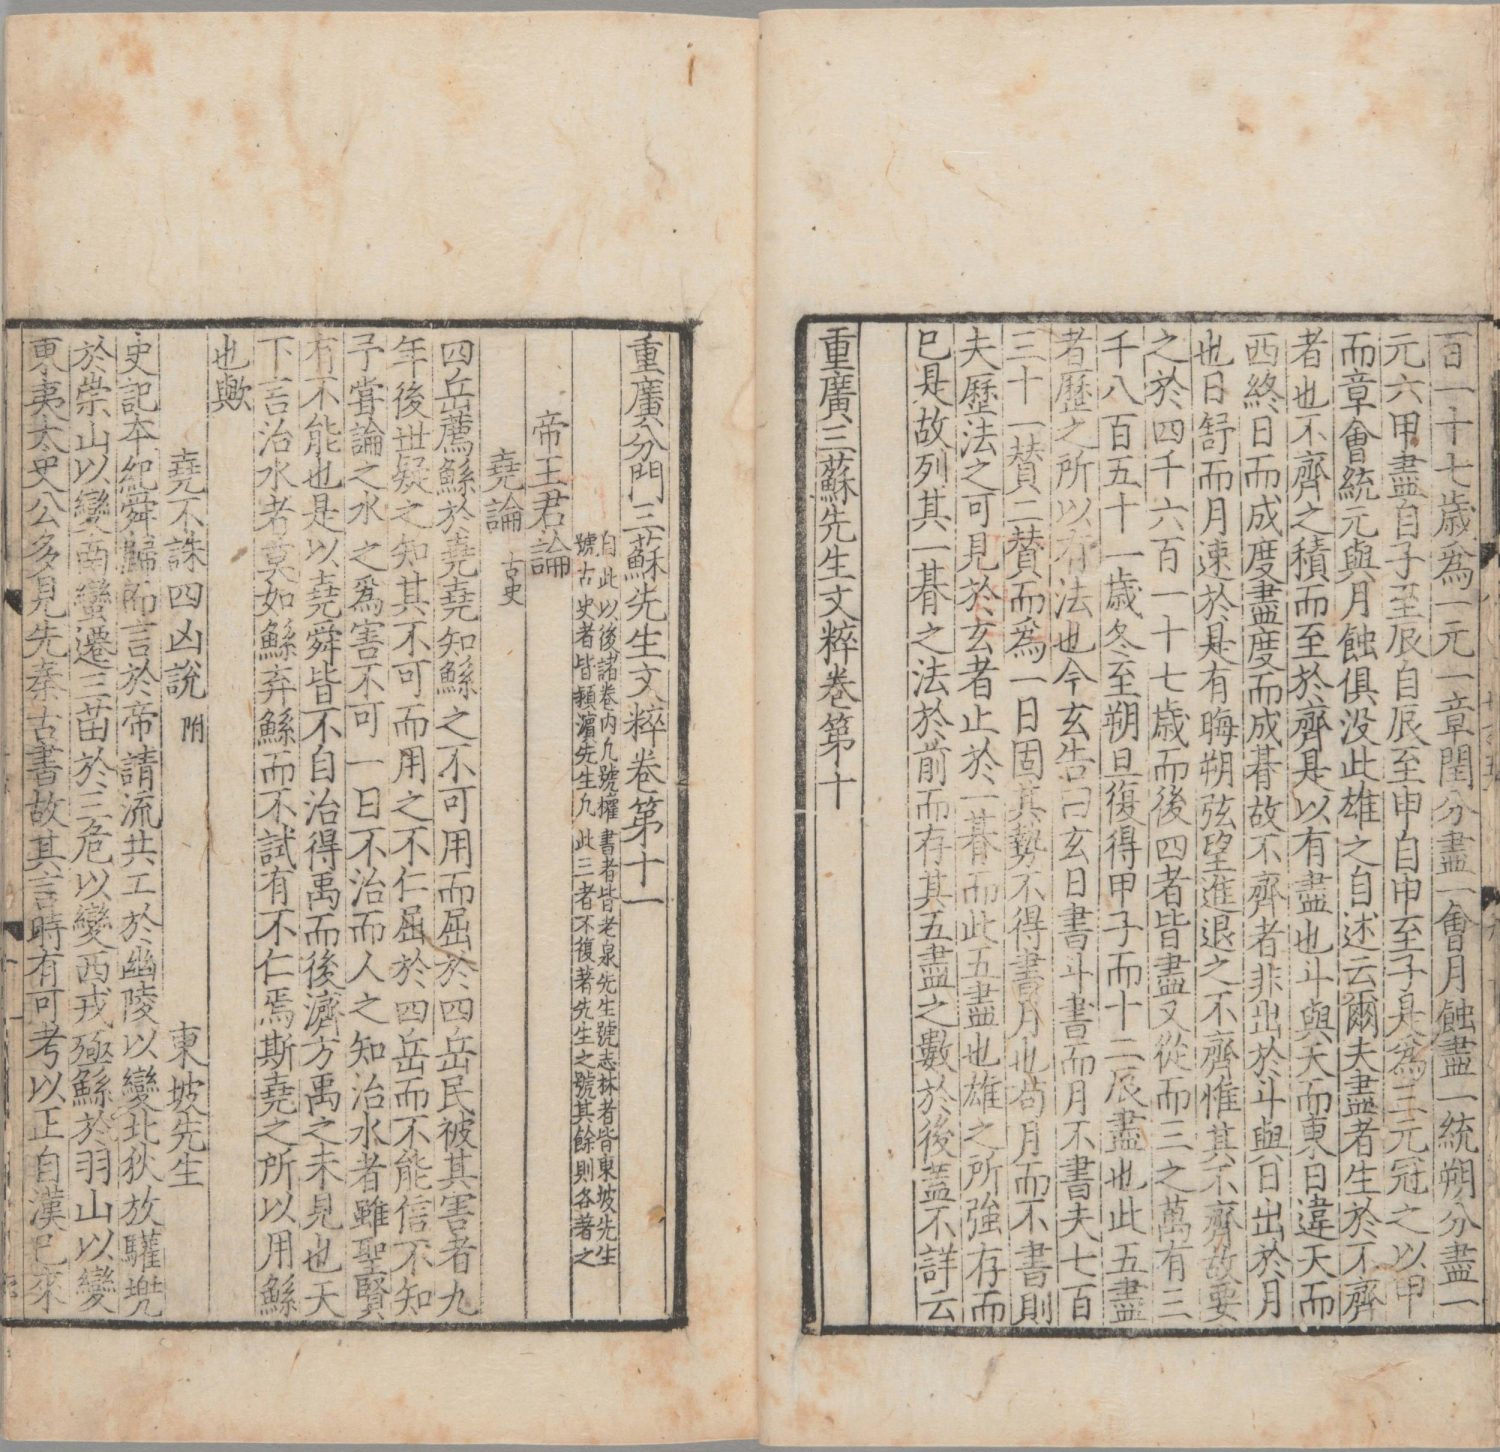 百一十七歳為一元一章閏分盡一會月蝕盡一統朔分盡一
元六甲盡自子至辰自辰至申自申至子是為三元冠之以甲
而章會統元與月蝕俱没此雄之自述云爾夫盡者生於不齊
者也不齊之積而至於齊是以有盡也斗與天而東日違天而
西終日而成度盡度而成朞故不齊者非出於斗與日出於月
也日舒而月速於是有晦朔弦望進退之不齊惟其不齊故要
之於四千六百一十七歳而後四者皆盡又從而三之萬有三
千八百五十一歳冬至朔旦復得甲子而十二辰盡也此五盡
者歷之所以有法也今玄告曰玄日書斗書而月不書夫七百
三十一賛二賛而為一日固其勢不得書月也茍月而不書則
夫歷法之可見於玄者止於一朞而此五盡也雄之所強存而
已是故列其一朞之法於前而存其五盡之數於後盖不詳云
重廣三蘇先生文粹卷第十
重廣分門三蘇先生文粹卷第十一
自此以後諸卷内九號權書者皆老泉先生號志林者皆東坡先生
號古史者皆頴濵先生九此三者不復著先生之號其餘則各著之
帝王君論
堯論 古史
四岳薦鯀於堯堯知鯀之不可用而屈於四岳民被其害者九
年後世疑之知其不可而用之不仁屈於四岳而不能信不知
予甞論之水之為害不可一日不治而人之知治水者雖聖賢
有不能也是以堯舜皆不自治得禹而後濟方禹之未見也天
下言治水者莫如鯀弃鯀而不試有不仁焉斯堯之所以用鯀
也歟
堯不誅四凶說 附 東坡先生
史記本紀舜歸而言於帝請流共工於幽陵以變北狄放驩兠
於崇山以變南蠻遷三苗於三危以變西戎殛鯀於羽山以變
東夷太史公多見先秦古書故其言時有可考以正自漢已來